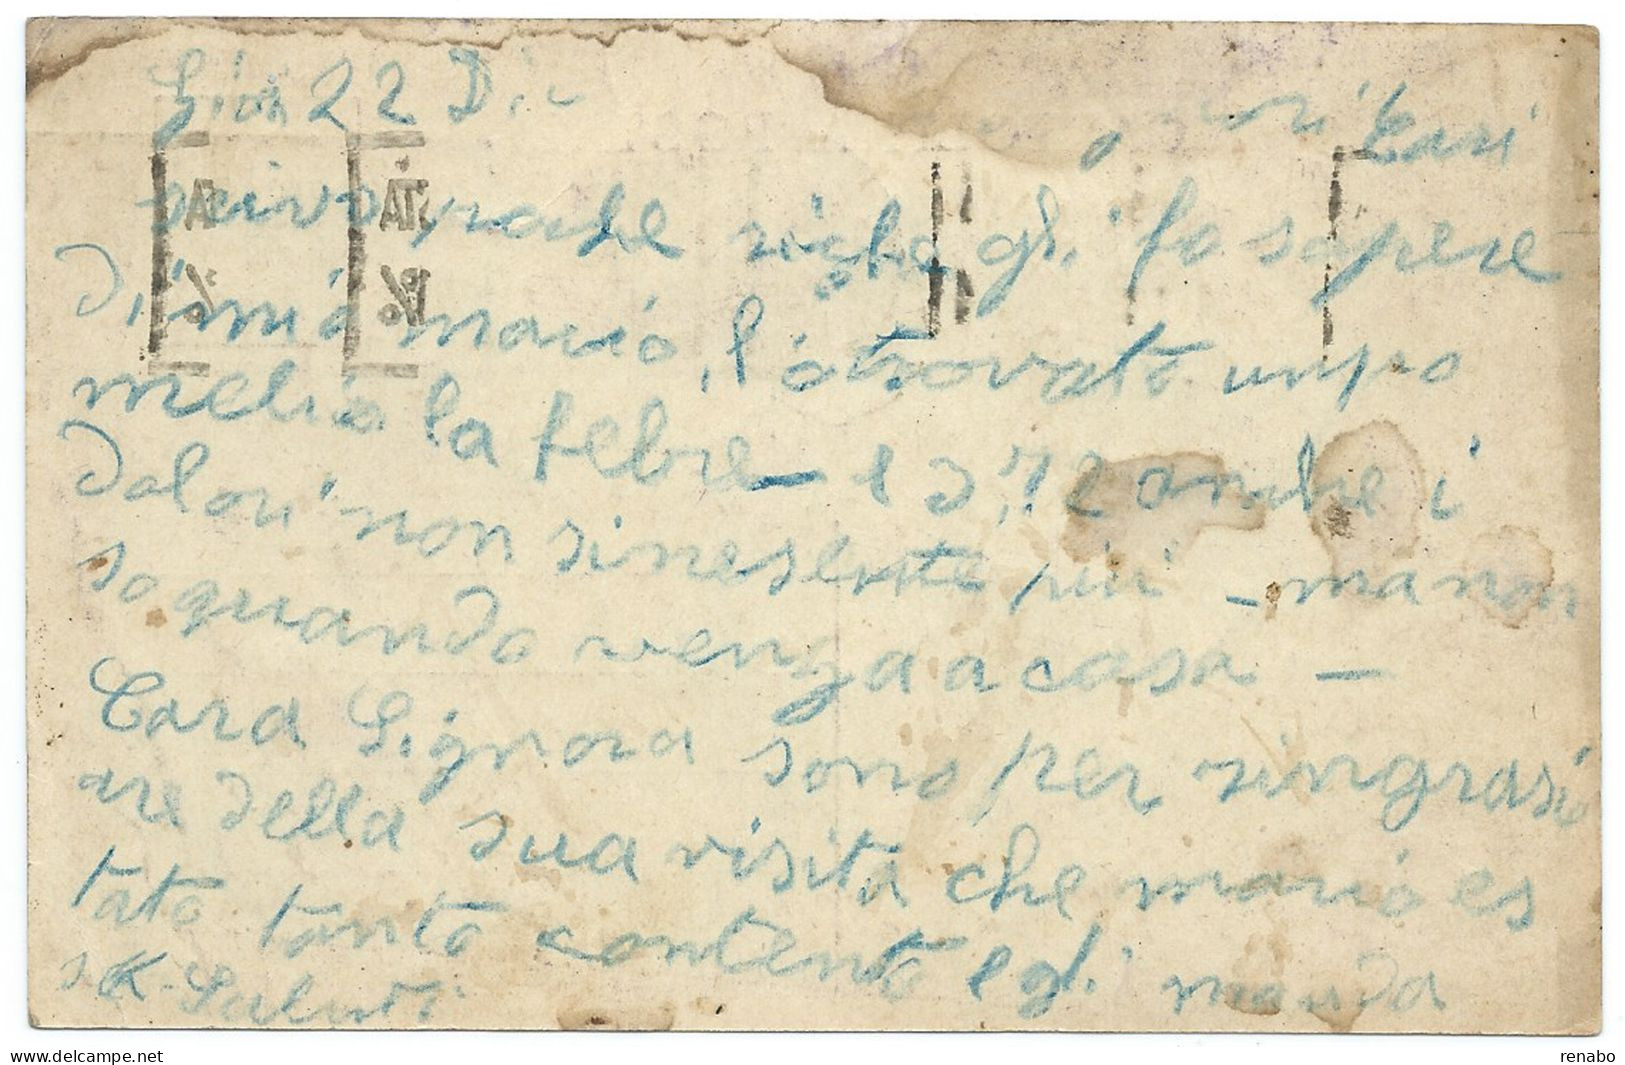 22 Dic
Cari
scivo poche righe gli fo sapere
di mio mario, l'o trovato unpo
melio la febre - e 37 2 anche i
dolori non sinesente più - ma non
so quando venga a casa -
Cara Signora sono per ringrasi
are della sua visita che mario es
tato tanto contento e gli manda
Saluti
renabo
www.delcampe.net